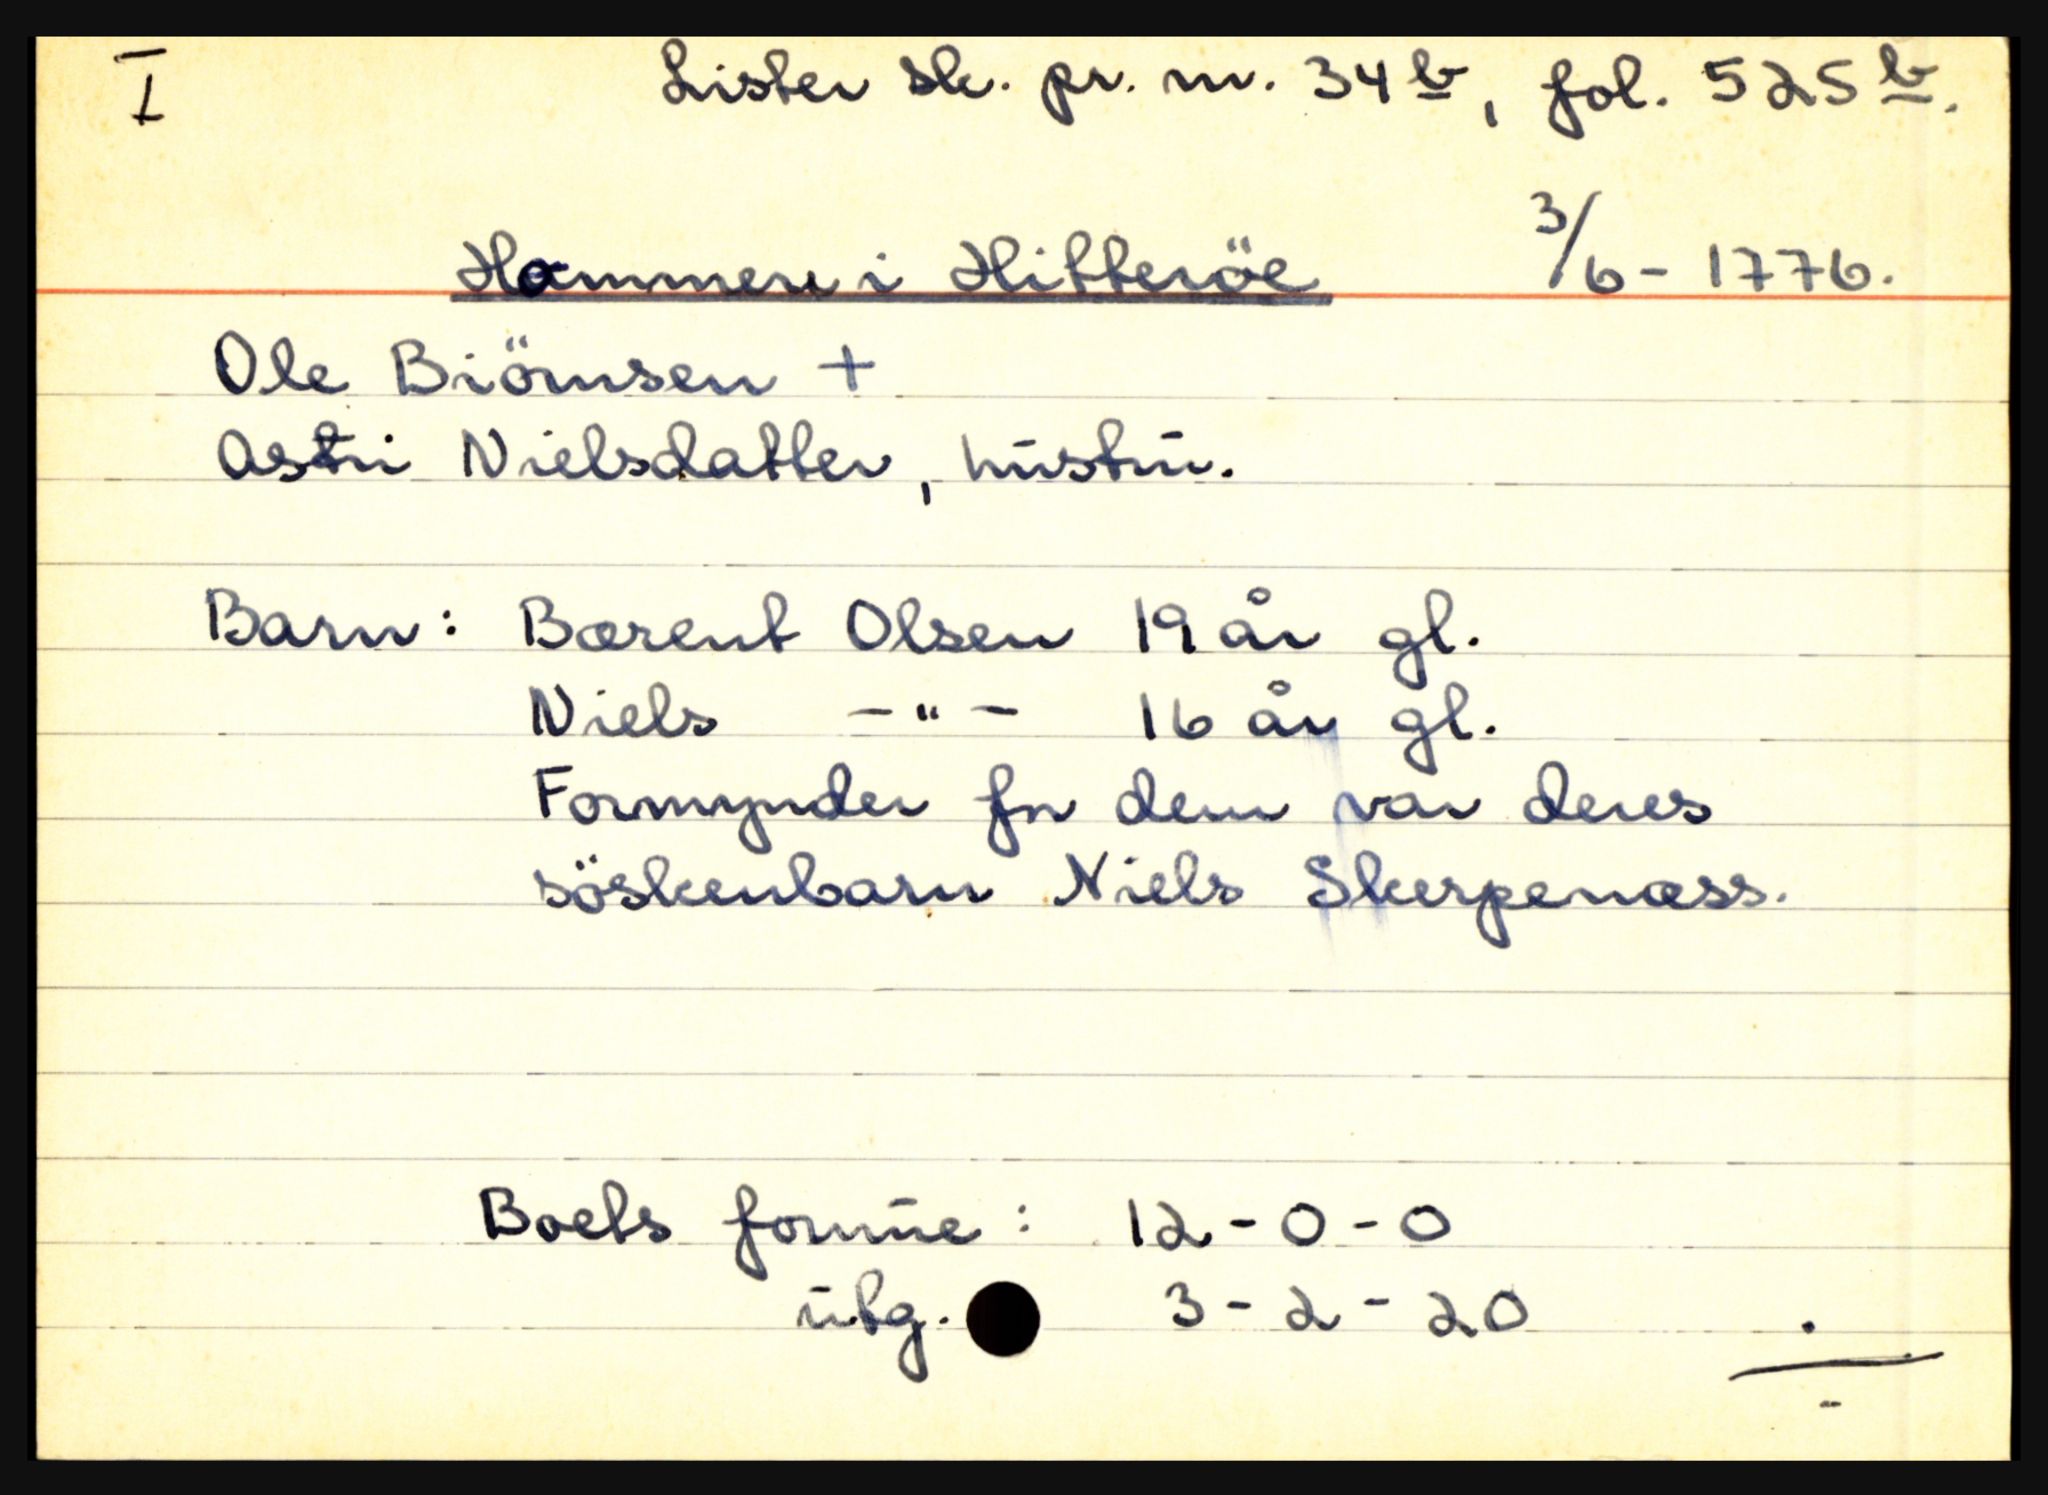 I Lister sk. pr. nr. 34 b, fol. 525 b.
3/6 - 1776.
Hammeren i Hitteröe
Ole Biörnsen +
Astri Nielsdatter, hustru.
Barn: Bærent Olsen 19 år gl.
Niels - " - 16 år gl.
Formynder for dem var deres
söskenbarn Niels Skerpenæss.
Boets formue: 12 - 0 - 0
utg. 3 - 2 - 20